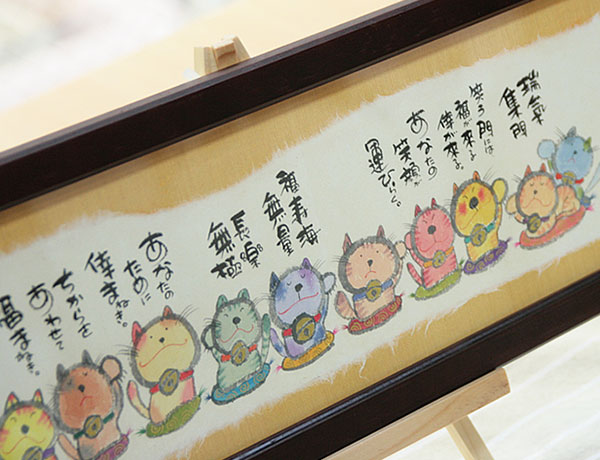 瑞氣
集門
笑う門には
福が来る
倖が来る。
あなたの
笑顔が
運ひらく。
福寿海
無量
長楽
無極
あなたの
ために
倖まねき。
ちからを
あわせて
福まねき。